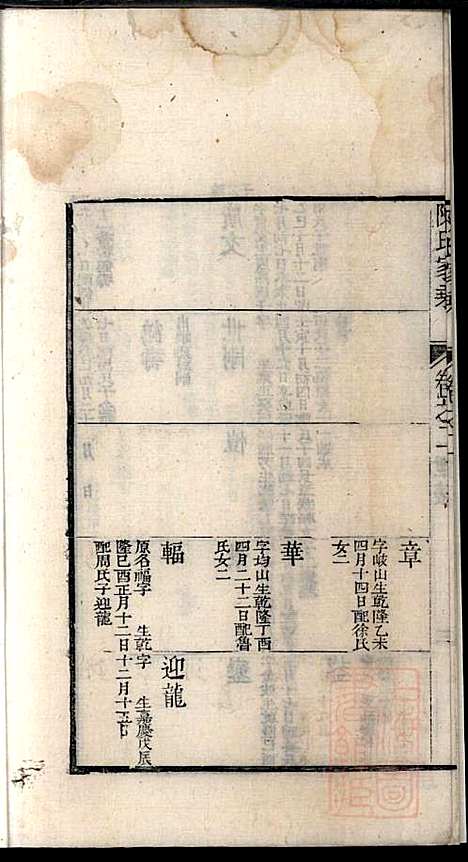 陳氏家乘
章
字岐山生乾隆乙未
四月十四日配徐氏
女二
華
字均山生乾隆丁酉
四月二十二日配魯
氏女二
輻
原名福字　生乾
隆己酉正月十二日
配周氏子迎龍
迎龍
字　生嘉慶戊辰
十二月十五日